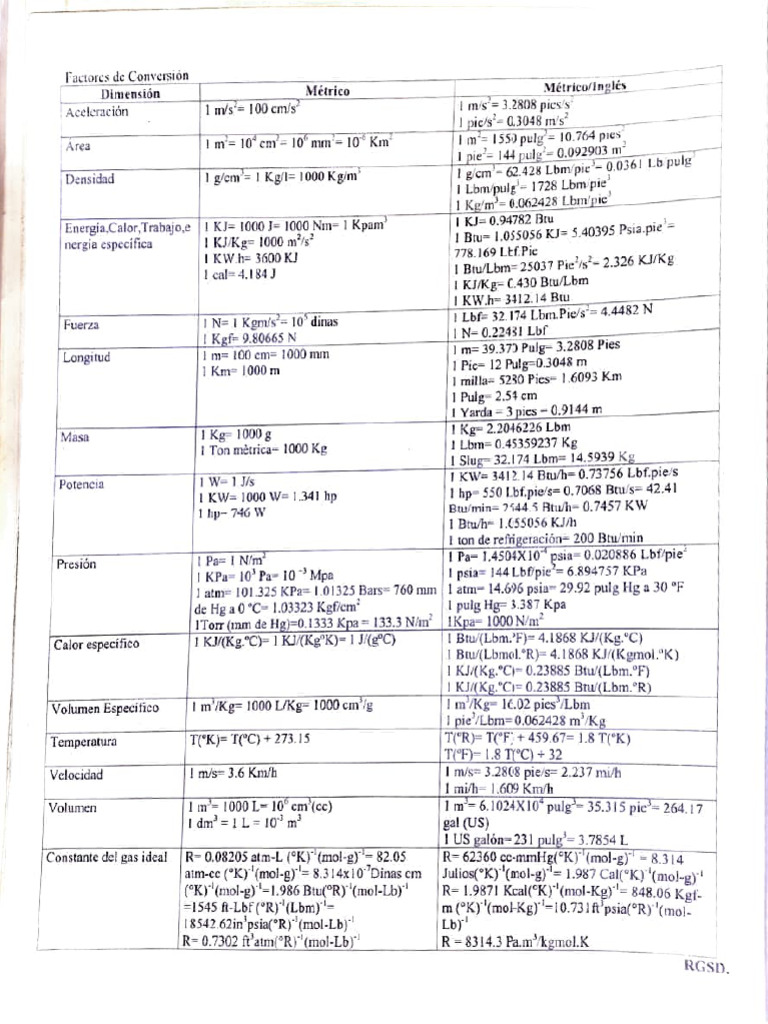 Factores de Conversión
Dimensión Métrico Métrico/Inglés
Aceleración 1 m/s²= 100 cm/s² 1 m/s²= 3.2808 pies/s²
1 pie/s²= 0.3048 m/s²
Área 1 m²= 10⁴ cm²= 10⁶ mm²= 10⁻⁶ Km² 1 m²= 1550 pulg²= 10.764 pies²
1 pie²= 144 pulg²= 0.092903 m²
Densidad 1 g/cm³= 1 Kg/l= 1000 Kg/m³ 1 g/cm³= 62.428 Lbm/pie³= 0.0361 Lb pulg³
1 Lbm/pulg³= 1728 Lbm/pie³
1 Kg/m³= 0.062428 Lbm/pie³
Energía,Calor,Trabajo,e 1 KJ= 1000 J= 1000 Nm= 1 Kpam³ 1 KJ= 0.94782 Btu
nergía específica 1 KJ/Kg= 1000 m²/s² 1 Btu= 1.055056 KJ= 5.40395 Psia.pie³=
1 KW.h= 3600 KJ 778.169 Lbf.Pie
1 cal= 4.184 J 1 Btu/Lbm= 25037 Pie²/s²= 2.326 KJ/Kg
1 KJ/Kg= 0.430 Btu/Lbm
1 KW.h= 3412.14 Btu
Fuerza 1 N= 1 Kgm/s²= 10⁵ dinas 1 Lbf= 32.174 Lbm.Pie/s²= 4.4482 N
1 Kgf= 9.80665 N 1 N= 0.22481 Lbf
Longitud 1 m= 100 cm= 1000 mm 1 m= 39.370 Pulg= 3.2808 Pies
1 Km= 1000 m 1 Pie= 12 Pulg=0.3048 m
1 milla= 5280 Pies= 1.6093 Km
1 Pulg= 2.54 cm
1 Yarda = 3 pies = 0.9144 m
Masa 1 Kg= 1000 g 1 Kg= 2.2046226 Lbm
1 Ton mètrica= 1000 Kg 1 Lbm= 0.45359237 Kg
1 Slug= 32.174 Lbm= 14.5939 Kg
Potencia 1 W= 1 J/s 1 KW= 3412.14 Btu/h= 0.73756 Lbf.pie/s
1 KW= 1000 W= 1.341 hp 1 hp= 550 Lbf.pie/s= 0.7068 Btu/s= 42.41
1 hp= 746 W Btu/min= 2544.5 Btu/h= 0.7457 KW
1 Btu/h= 1.055056 KJ/h
1 ton de refrigeración= 200 Btu/min
Presión 1 Pa= 1 N/m² 1 Pa= 1.4504X10⁻⁴ psia= 0.020886 Lbf/pie²
1 KPa= 10³ Pa= 10⁻³ Mpa 1 psia= 144 Lbf/pie²= 6.894757 KPa
1 atm= 101.325 KPa= 1.01325 Bars= 760 mm 1 atm= 14.696 psia= 29.92 pulg Hg a 30 °F
de Hg a 0 °C= 1.03323 Kgf/cm² 1 pulg Hg= 3.387 Kpa
1Torr (mm de Hg)=0.1333 Kpa = 133.3 N/m² 1Kpa= 1000 N/m²
Calor especifico 1 KJ/(Kg.°C)= 1 KJ/(Kg°K)= 1 J/(g°C) 1 Btu/(Lbm.°F)= 4.1868 KJ/(Kg.°C)
1 Btu/(Lbmol.°R)= 4.1868 KJ/(Kgmol.°K)
1 KJ/(Kg.°C)= 0.23885 Btu/(Lbm.°F)
1 KJ/(Kg.°C)= 0.23885 Btu/(Lbm.°R)
Volumen Específico 1 m³/Kg= 1000 L/Kg= 1000 cm³/g 1 m³/Kg= 16.02 pies³/Lbm
1 pie³/Lbm= 0.062428 m³/Kg
Temperatura T(°K)= T(°C) + 273.15 T(°R)= T(°F) + 459.67= 1.8 T(°K)
T(°F)= 1.8 T(°C) + 32
Velocidad 1 m/s= 3.6 Km/h 1 m/s= 3.2808 pie/s= 2.237 mi/h
1 mi/h= 1.609 Km/h
Volumen 1 m³= 1000 L= 10⁶ cm³(cc) 1 m³= 6.1024X10⁴ pulg³= 35.315 pie³= 264.17
1 dm³ = 1 L = 10⁻³ m³ gal (US)
1 US galón=231 pulg³= 3.7854 L
Constante del gas ideal R= 0.08205 atm-L (°K)⁻¹(mol-g)⁻¹= 82.05 R= 62360 cc-mmHg(°K)⁻¹(mol-g)⁻¹ = 8.314
atm-cc (°K)⁻¹(mol-g)⁻¹= 8.314x10⁻⁷Dinas cm Julios(°K)⁻¹(mol-g)⁻¹= 1.987 Cal(°K)⁻¹(mol-g)⁻¹
(°K)⁻¹(mol-g)⁻¹=1.986 Btu(°R)⁻¹(mol-Lb)⁻¹ R= 1.9871 Kcal(°K)⁻¹(mol-Kg)⁻¹= 848.06 Kgf-
=1545 ft-Lbf (°R)⁻¹(Lbm)⁻¹= m (°K)⁻¹(mol-Kg)⁻¹=10.731ft³psia(°R)⁻¹(mol-
18542.62in³psia(°R)⁻¹(mol-Lb)⁻¹ Lb)⁻¹
R= 0.7302 ft³atm(°R)⁻¹(mol-Lb)⁻¹ R = 8314.3 Pa.m³/kgmol.K
RGSD.